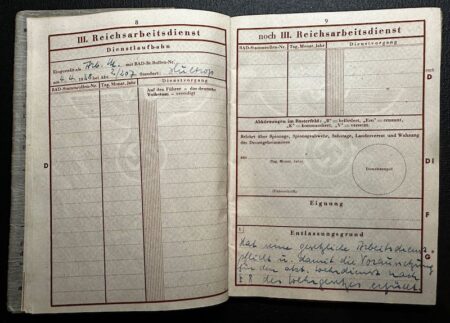 8
III. Reichsarbeitsdienst
Dienstlaufbahn
Eingestellt als Arb. M. mit RAD-St.Rollen-Nr.
am 4. 4. 19 bei Abt. 2/207 Standort:
RAD-Stammrollen-Nr. Tag, Monat, Jahr Dienstvorgang
Auf den Führer – das deutsche
Volkstum – vereidigt
D
9
noch III. Reichsarbeitsdienst
RAD-Stammrollen-Nr. Tag, Monat, Jahr Dienstvorgang
noch
D
Abkürzungen im Rasterfeld: „B“ = befördert, „Ern“ = ernannt,
„K“ = kommandiert, „V“ = versetzt.
Belehrt über Spionage, Spionageabwehr, Sabotage, Landesverrat und Wahrung
des Dienstgeheimnisses
am
(Tag, Monat, Jahr)
Dienststempel
(Unterschrift)
DI
Eignung
F
Entlassungsgrund
Hat seine gesetzliche Arbeitsdienst-
pflicht u. damit die Voraussetzung
für den akt. Wehrdienst nach
§ 8 des Wehrgesetzes erfüllt.
G